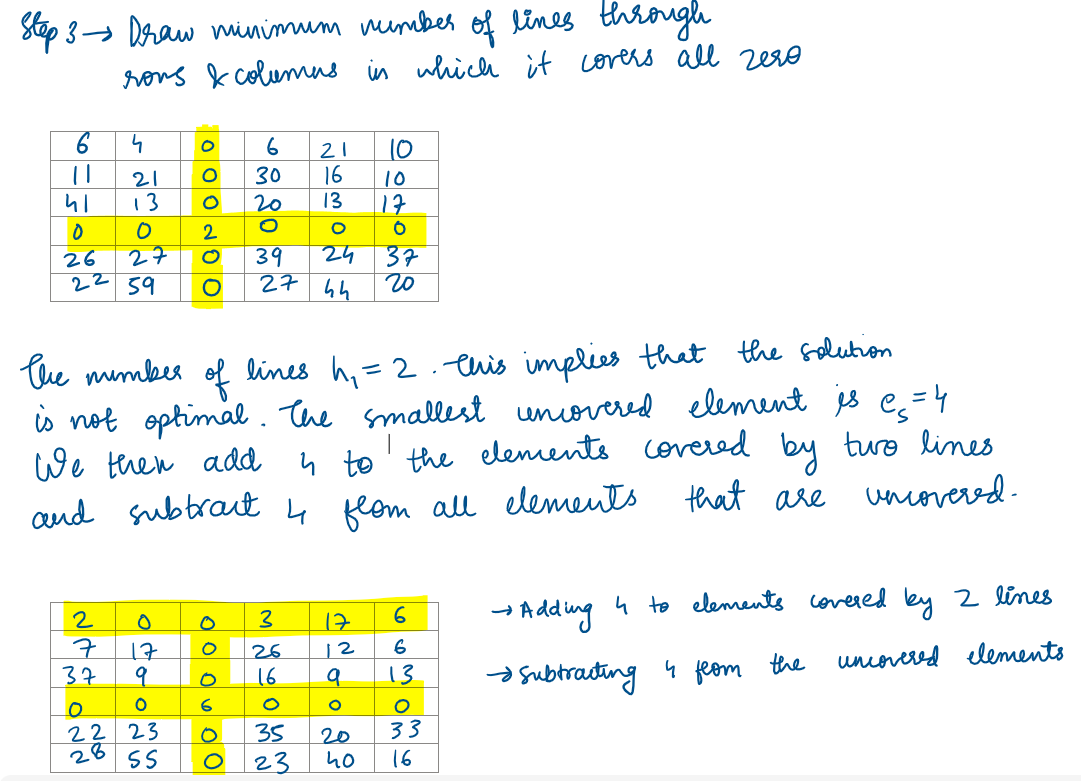 Step 3 → Draw minimum number of lines through
rows & columns in which it covers all zero
6 4 0 6 21 10
11 21 0 30 16 10
41 13 0 20 13 17
0 0 2 0 0 0
26 27 0 39 24 37
22 59 0 27 44 20
The number of lines h₁ = 2. This implies that the solution
is not optimal. The smallest uncovered element is eₛ = 4
We then add 4 to the elements covered by two lines
and subtract 4 from all elements that are uncovered.
2 0 0 3 17 6
7 17 0 26 12 6
37 9 0 16 9 13
0 0 6 0 0 0
22 23 0 35 20 33
28 55 0 23 40 16
→ Adding 4 to elements covered by 2 lines
→ Subtracting 4 from the uncovered elements